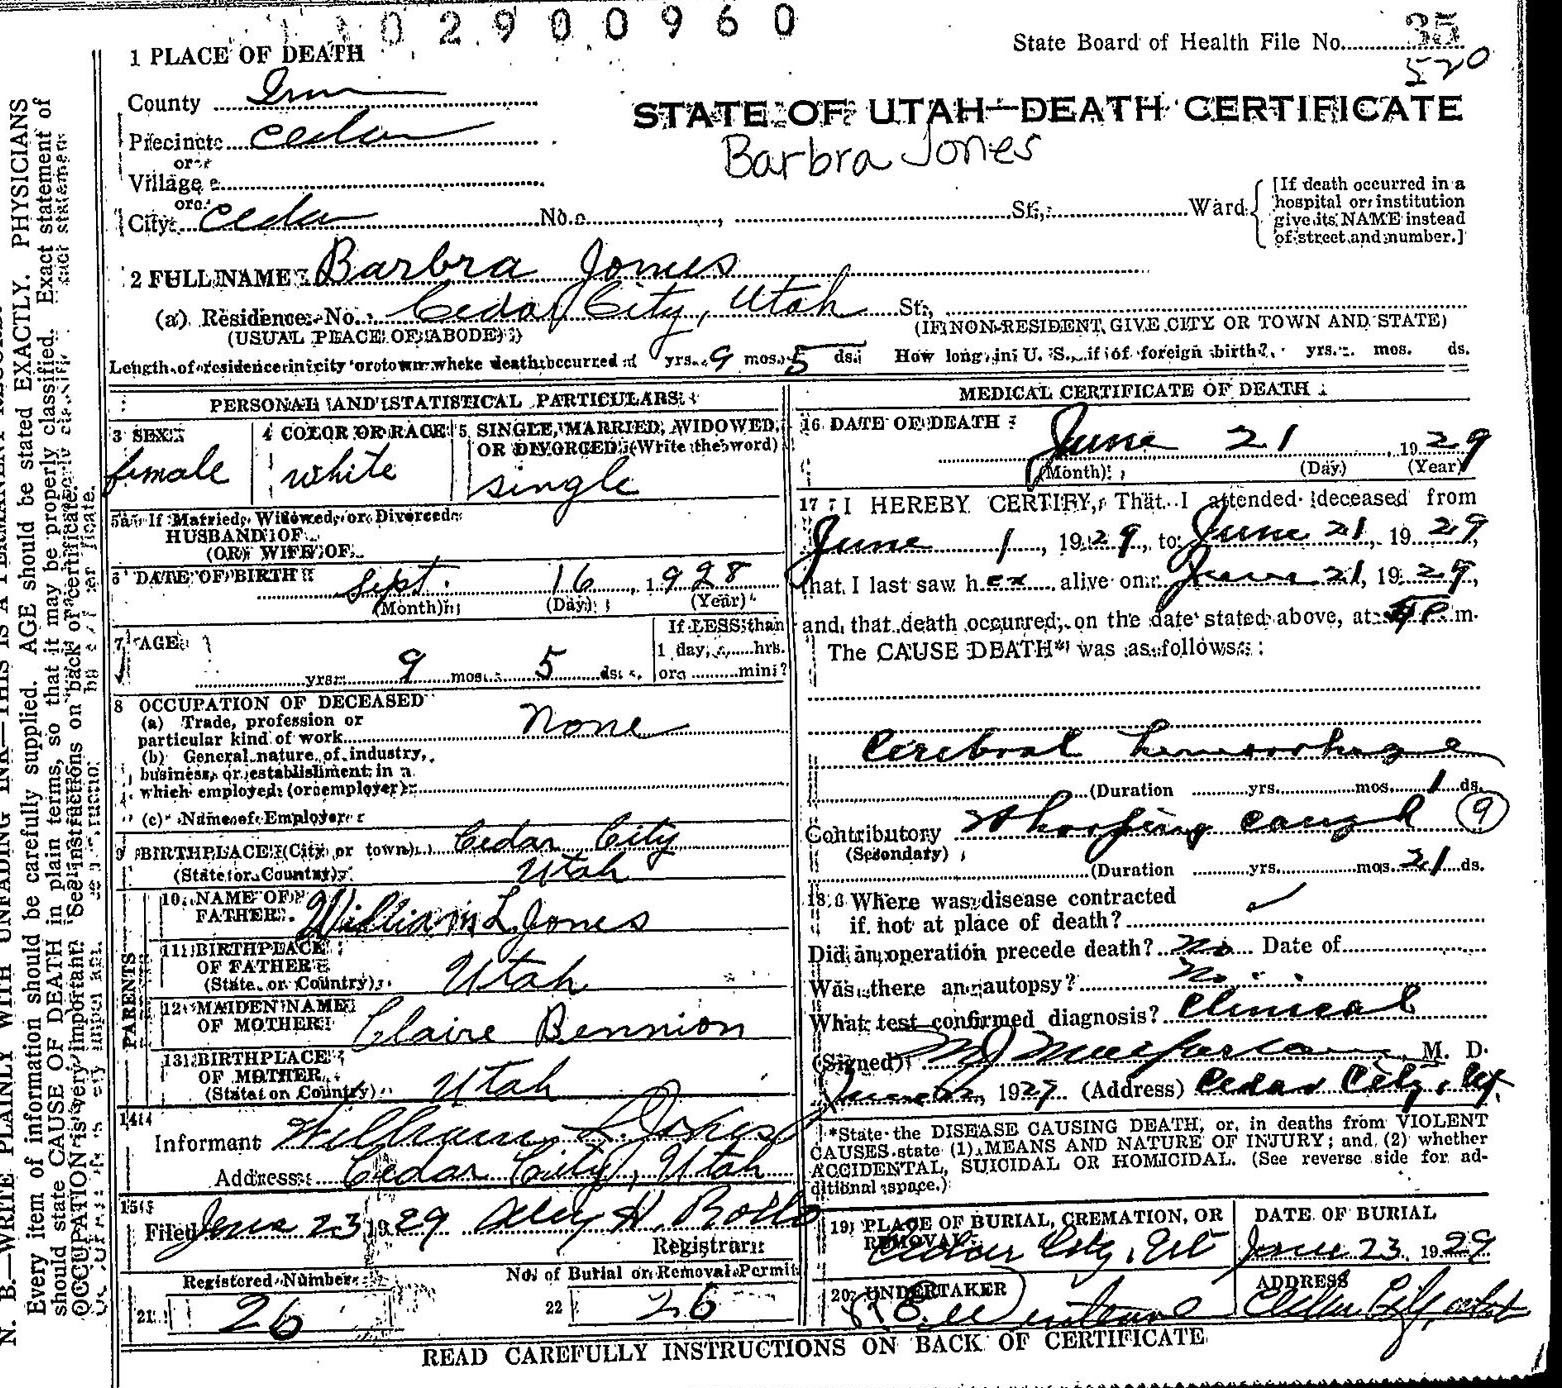 02900960
State Board of Health File No. 35
520
1 PLACE OF DEATH
County Iron
STATE OF UTAH—DEATH CERTIFICATE
Precinct Cedar
Barbra Jones
or
Village
or
City Cedar No. , St., Ward
[If death occurred in a
hospital or institution
give its NAME instead
of street and number.]
2 FULL NAME Barbra Jones
(a) Residence. No. Cedar City, Utah St.,
(USUAL PLACE OF ABODE) (IF NON-RESIDENT, GIVE CITY OR TOWN AND STATE)
Length of residence in city or town where death occurred yrs. 9 mos. 5 ds. How long in U. S., if of foreign birth? yrs. mos. ds.
PERSONAL AND STATISTICAL PARTICULARS
3 SEX
female
4 COLOR OR RACE
white
5 SINGLE, MARRIED, WIDOWED,
OR DIVORCED (Write the word)
single
5a If Married, Widowed, or Divorced
HUSBAND OF
(OR) WIFE OF
6 DATE OF BIRTH Sept. 16, 1928
(Month) (Day) (Year)
7 AGE
yrs. 9 mos. 5 ds.
If LESS than
1 day, hrs.
or min?
8 OCCUPATION OF DECEASED
(a) Trade, profession or
particular kind of work None
(b) General nature of industry,
business, or establishment in
which employed (or employer)
(c) Name of Employer
9 BIRTHPLACE (City or town) Cedar City
(State or Country) Utah
PARENTS
10 NAME OF
FATHER William L. Jones
11 BIRTHPLACE
OF FATHER
(State or Country) Utah
12 MAIDEN NAME
OF MOTHER Claire Bennion
13 BIRTHPLACE
OF MOTHER
(State or Country) Utah
14
Informant William L. Jones
Address Cedar City, Utah
15
Filed June 23 1929
Registrar
Registered Number
21 26
No. of Burial or Removal Permit
22 26
MEDICAL CERTIFICATE OF DEATH
16 DATE OF DEATH
June 21, 1929
(Month) (Day) (Year)
17 I HEREBY CERTIFY, That I attended deceased from
June 1, 1929, to June 21, 1929,
that I last saw her alive on June 21, 1929,
and that death occurred, on the date stated above, at m.
The CAUSE DEATH* was as follows:
Cerebral hemorrhage
(Duration yrs. mos. 1 ds.
Contributory Whooping cough 9
(Secondary)
(Duration yrs. mos. 21 ds.
18 Where was disease contracted
if not at place of death?
Did an operation precede death? No Date of
Was there an autopsy? No
What test confirmed diagnosis? Clinical
(Signed) M J Macfarlane, M. D.
1929 (Address) Cedar City, Ut.
*State the DISEASE CAUSING DEATH, or, in deaths from VIOLENT
CAUSES state (1) MEANS AND NATURE OF INJURY; and (2) whether
ACCIDENTAL, SUICIDAL OR HOMICIDAL. (See reverse side for ad-
ditional space.)
19 PLACE OF BURIAL, CREMATION, OR
REMOVAL
Cedar City, Ut
DATE OF BURIAL
June 23, 1929
20 UNDERTAKER
ADDRESS
Cedar City, Utah
READ CAREFULLY INSTRUCTIONS ON BACK OF CERTIFICATE
N. B.—WRITE PLAINLY WITH UNFADING INK—THIS IS A PERMANENT RECORD.
Every item of information should be carefully supplied. AGE should be stated EXACTLY. PHYSICIANS
should state CAUSE OF DEATH in plain terms, so that it may be properly classified. Exact statement of
OCCUPATION is very important. See instructions on back of certificate.